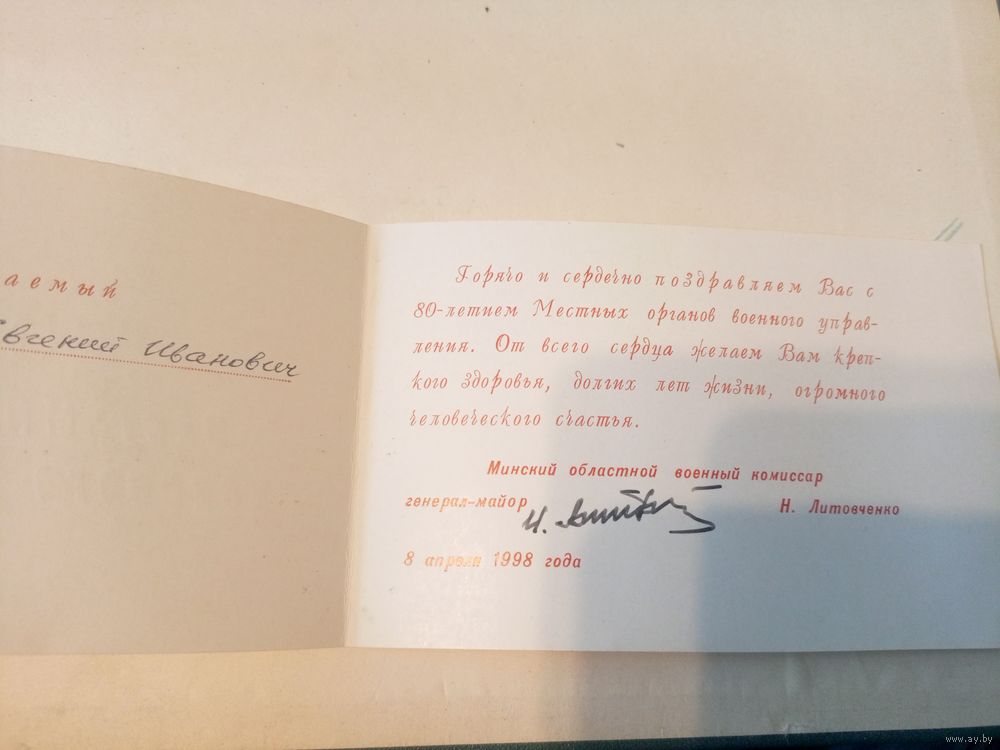 аемый
Евгений Иванович
Горячо и сердечно поздравляем Вас с
80-летием Местных органов военного управ-
ления. От всего сердца желаем Вам креп-
кого здоровья, долгих лет жизни, огромного
человеческого счастья.
Минский областной военный комиссар
генерал-майор Н. Литовченко
8 апреля 1998 года
www.ay.by